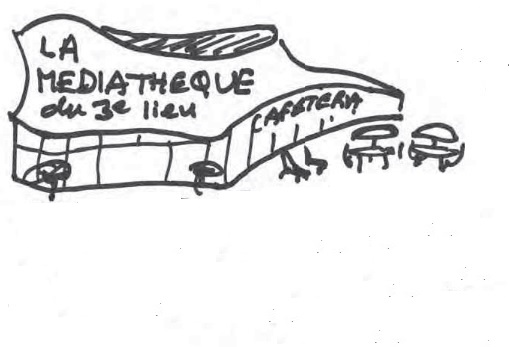 LA
MEDIATHEQUE
du 3e lieu
CAFETERIA